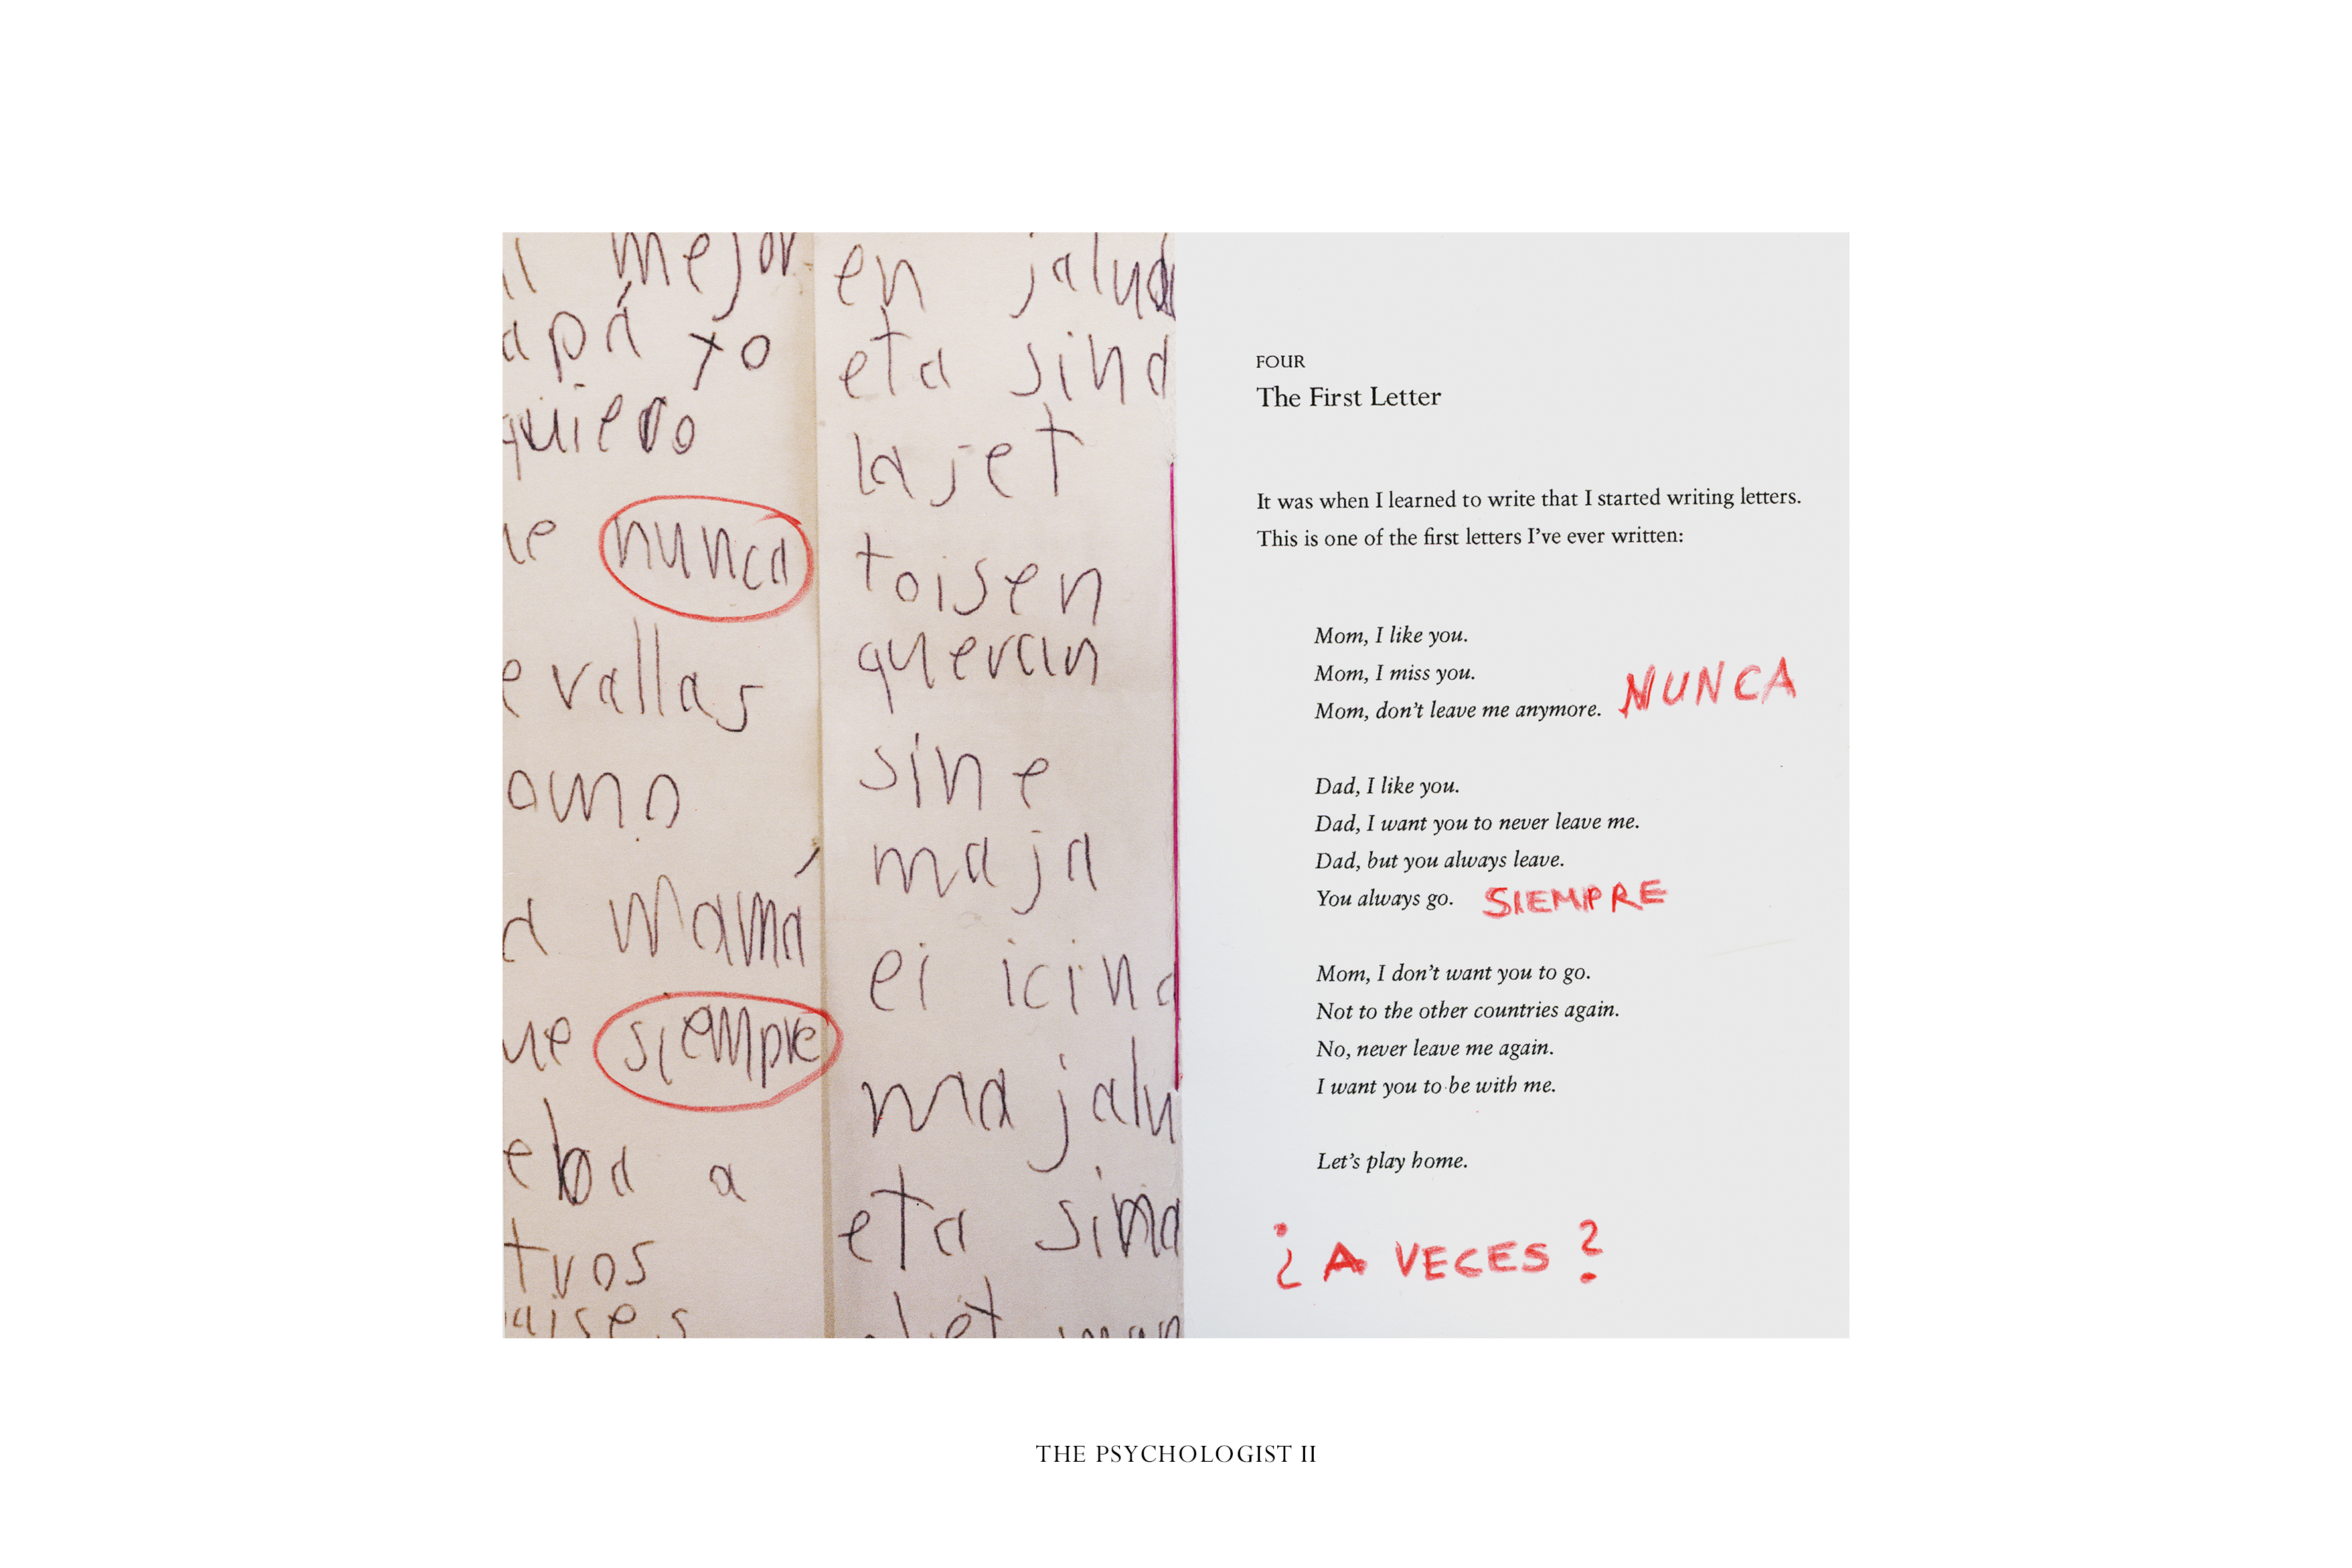 mejor
apá yo
quiero
nunca
e vallas
d mamá
ue siempre
eba a
tros
en jalud
eta sind
lajet
toisen
queran
sine
maja
ei icind
ma jalu
eta sind
FOUR
The First Letter
It was when I learned to write that I started writing letters.
This is one of the first letters I've ever written:
Mom, I like you.
Mom, I miss you.
Mom, don't leave me anymore. NUNCA
Dad, I like you.
Dad, I want you to never leave me.
Dad, but you always leave.
You always go. SIEMPRE
Mom, I don't want you to go.
Not to the other countries again.
No, never leave me again.
I want you to be with me.
Let's play home.
¿A VECES?
THE PSYCHOLOGIST II